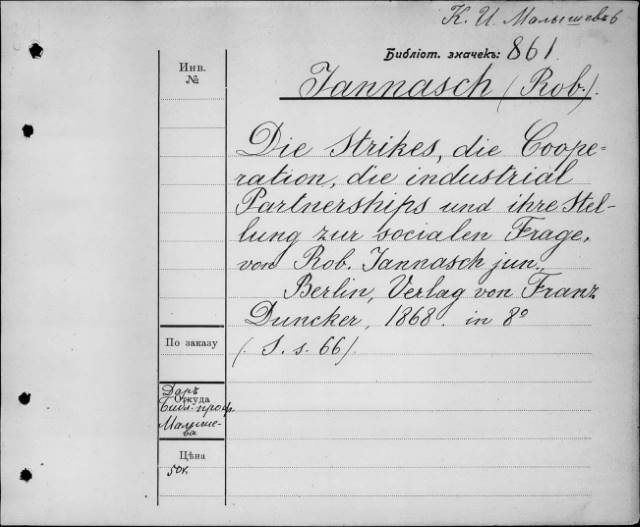 К. И. Малышевъ
Библіот. значекъ: 861
Инв.
№
Jannasch (Rob.).
Die Strikes, die Coope=
ration, die industrial
Partnerships und ihre Stel-
lung zur socialen Frage,
von Rob. Jannasch jun.
Berlin, Verlag von Franz
Duncker, 1868. in 8º
(S. s. 66).
По заказу
Даръ
Откуда
Библ. проф.
Малыше-
ва
Цѣна
50к.